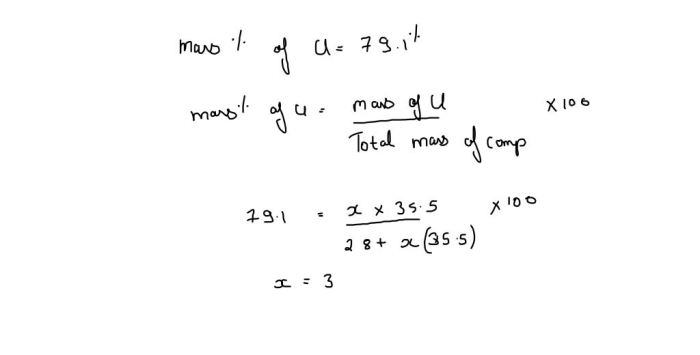 mass % of Cl = 79.1%
mass % of Cl = mass of Cl / Total mass of comp × 100
79.1 = x × 35.5 / 28 + x(35.5) × 100
x = 3